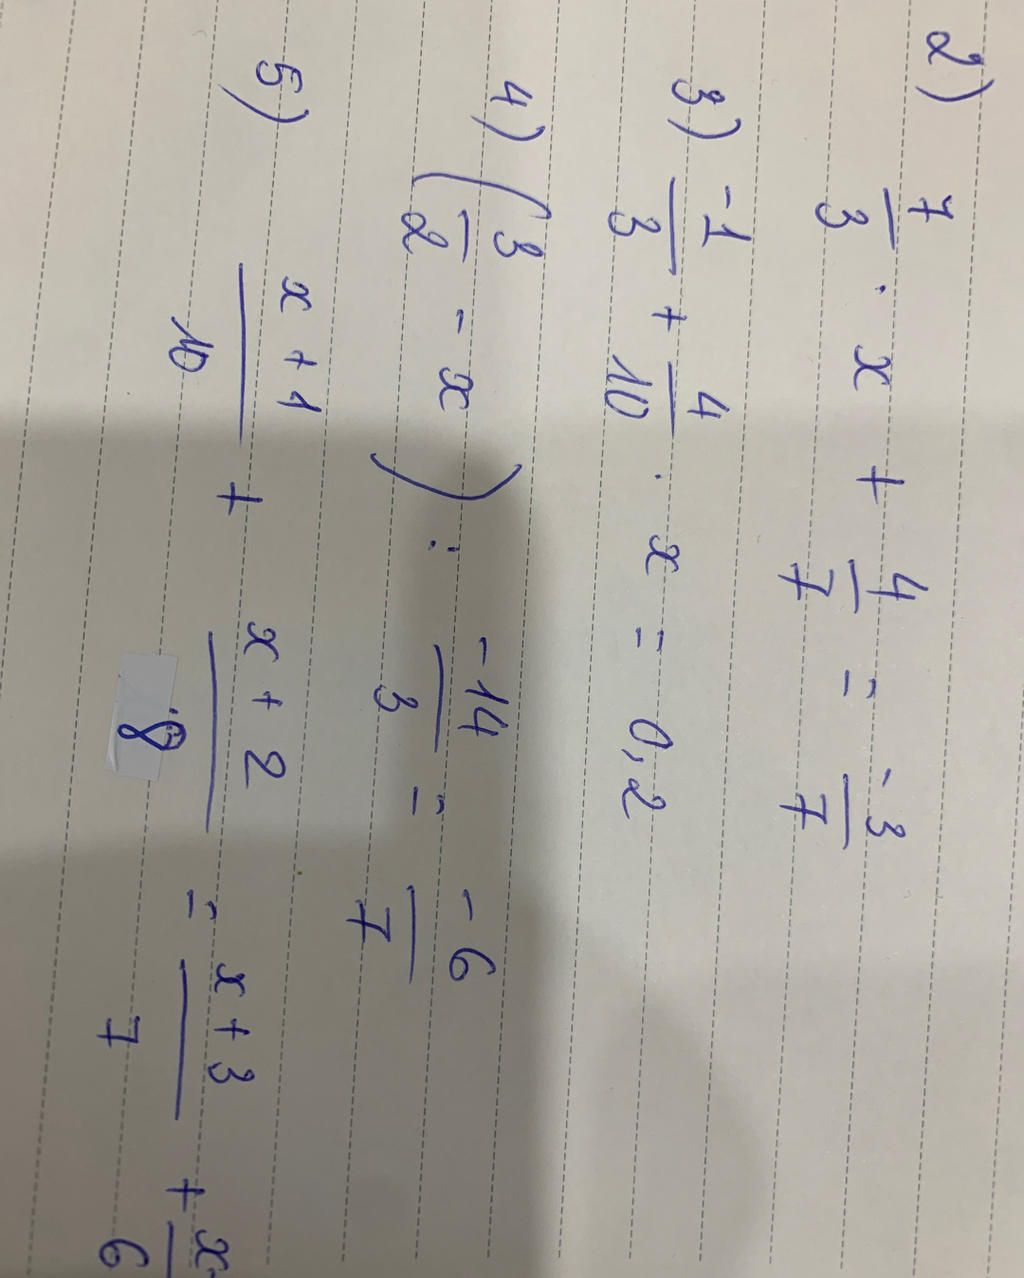 2) 7/3 · x + 4/7 = -3/7
3) -1/3 + 4/10 · x = 0,2
4) (3/2 - x) : -14/3 = -6/7
5) x + 1/10 + x + 2/8 = x + 3/7 + x/6